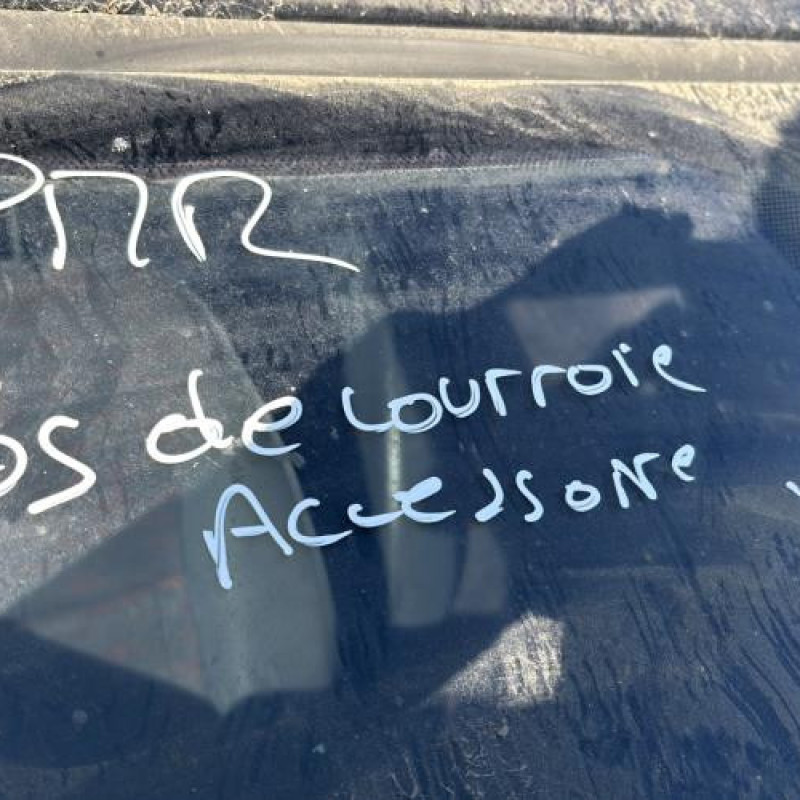 PMR
os de courroie
Accessoire